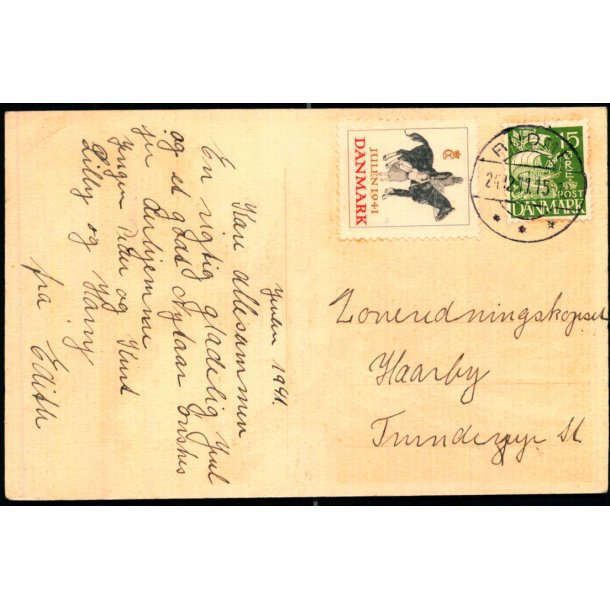 Julen 1941.
Kære allesammen
En rigtig glædelig Jul
og et godt Nytaar Ønskes
jer derhjemme
og Knud
Lilly og Harry
fra Edith
JULEN 1941
DANMARK
15
ØRE
POST
DANMARK
24.12.41.15
Zoneredningskorpset
Haarby
St